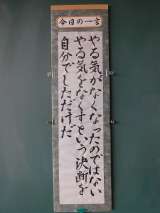 今日の一言
やる気がなくなったのではない
やる気をなくすという決断を
自分でしただけだ